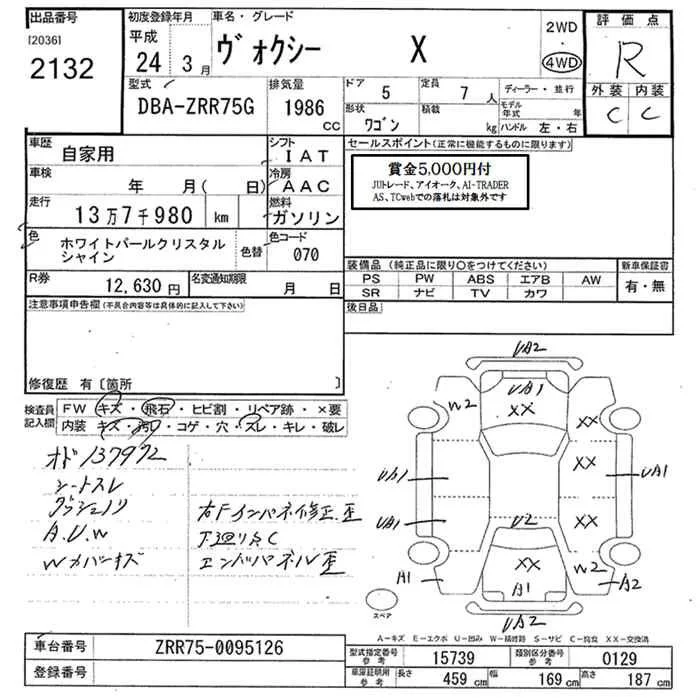 出品番号 初度登録年月 車名・グレード 2WD・4WD 評価点
[2036]
2132
平成 24年 3月 ヴォクシー X R
型式 DBA-ZRR75G 排気量 1986 CC ドア 5 定員 7人 ディーラー・並行
形状 ワゴン 積載 kg モデル年式 年 ハンドル 左・右 外装 C 内装 C
車歴 自家用 シフト IAT
車検 年 月( 日) 冷房 AAC
走行 13万7千980 km 燃料 ガソリン
色 ホワイトパールクリスタルシャイン 色替 色コード 070
R券 12,630円 名変通知期限 月 日
注意事項申告欄(不具合内容等は具体的に記入して下さい)
修復歴 有〔箇所 〕
セールスポイント(正常に機能するものに限ります)
賞金5,000円付
JUトレード、アイオーク、AI-TRADER
AS、TCwebでの落札は対象外です
装備品(純正品に限り○をつけてください) 新車保証書
PS PW ABS エアB AW 有・無
SR ナビ TV カワ
後日品
検査員記入欄 FW キズ・飛石・ヒビ割・リペア跡・×要
内装 キズ・汚れ・コゲ・穴・スレ・キレ・破レ
オド137972
シートスレ
ダッシュノリ
A.U.W
Wカバーキズ
右Fインパネ修正歪
下廻りSC
エンドパネル歪
UA2
UA1
XX
W2 XX
XX
UA1 UA1
UA1 XX
U2
XX W2
A1 A1 A2
UA2
スペア
A-キズ E-エクボ U-凹み W-補修跡 S-サビ C-腐食 XX-交換済
車台番号 ZRR75-0095126
登録番号
型式指定番号 参考 15739 類別区分番号 参考 0129
車庫証明用 参考 長さ 459 cm 幅 169 cm 高さ 187 cm